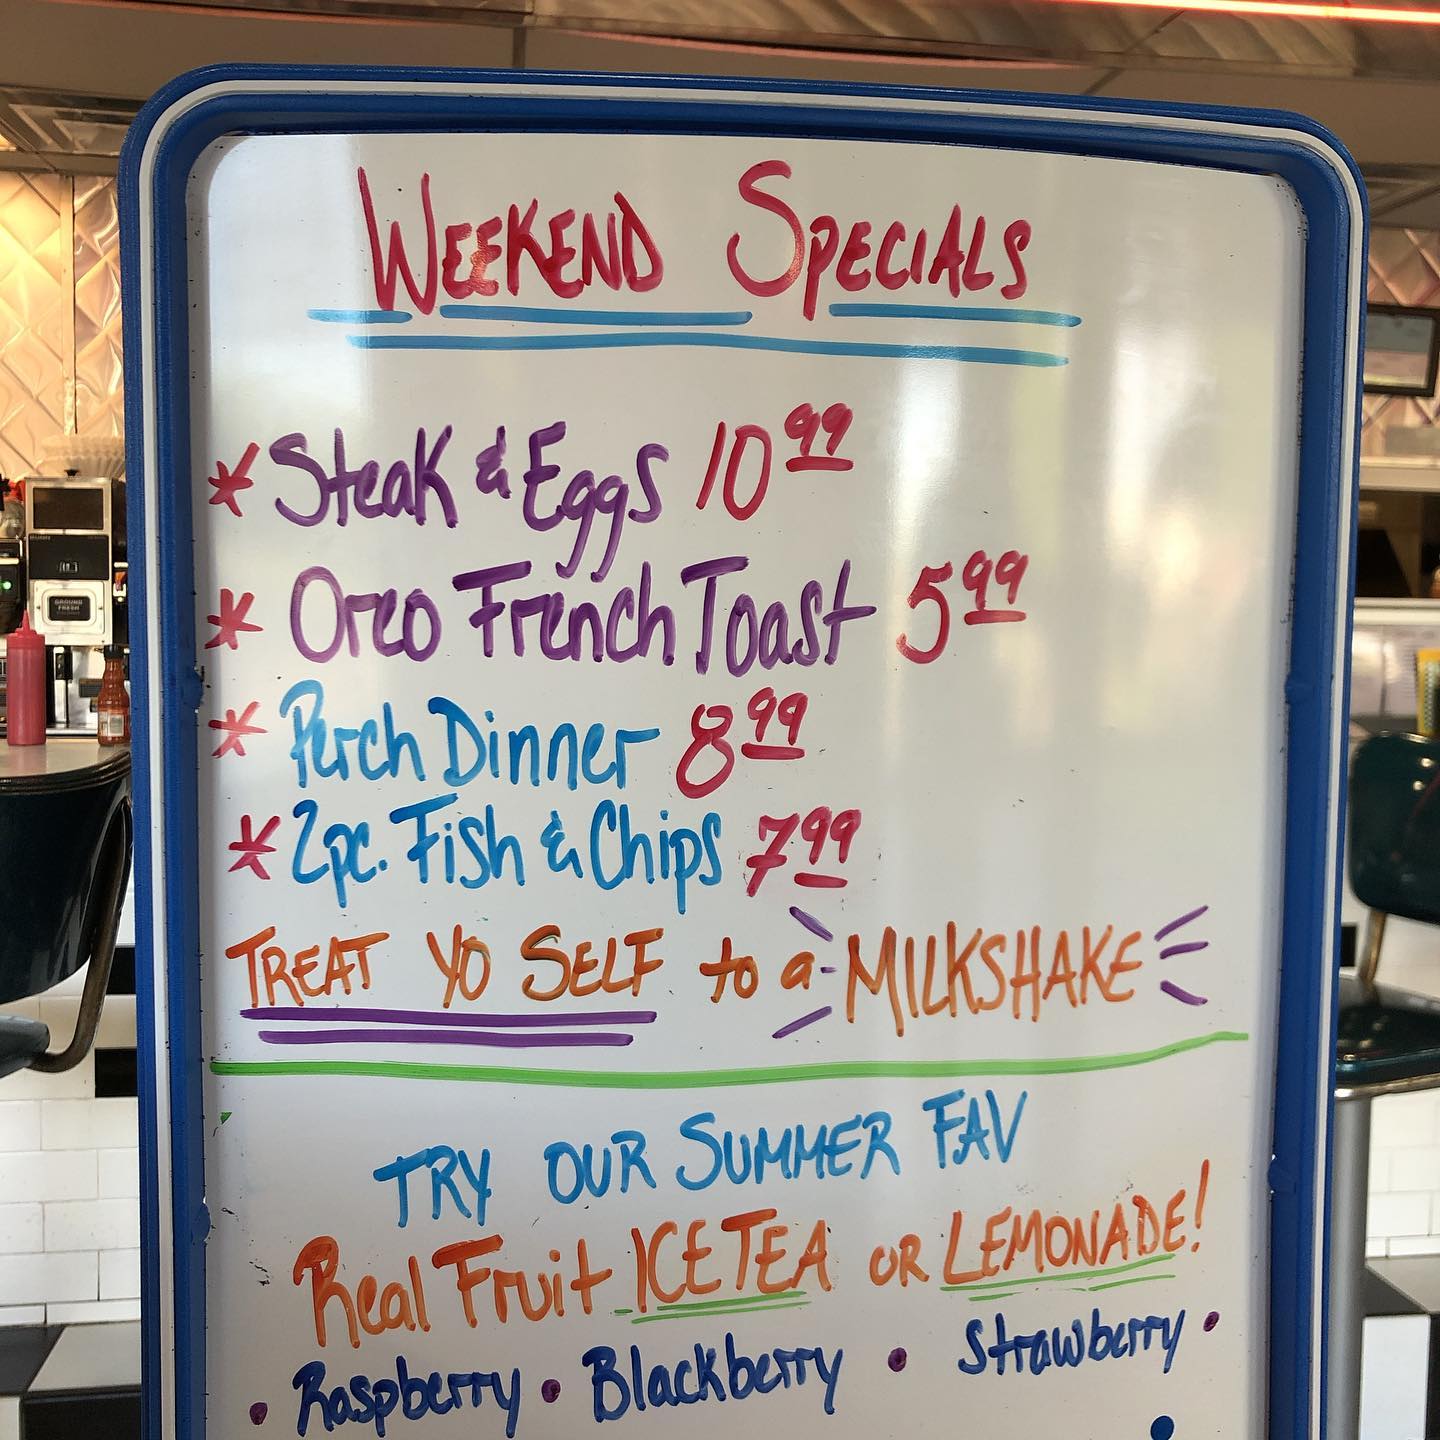 WEEKEND SPECIALS
* Steak & Eggs 10 99
* Oreo French Toast 5 99
* Perch Dinner 8 99
* 2pc. Fish & Chips 7 99
TREAT YO SELF to a MILKSHAKE
TRY OUR SUMMER FAV
Real Fruit ICE TEA OR LEMONADE!
• Raspberry • Blackberry • Strawberry •
GROUND
FRESH